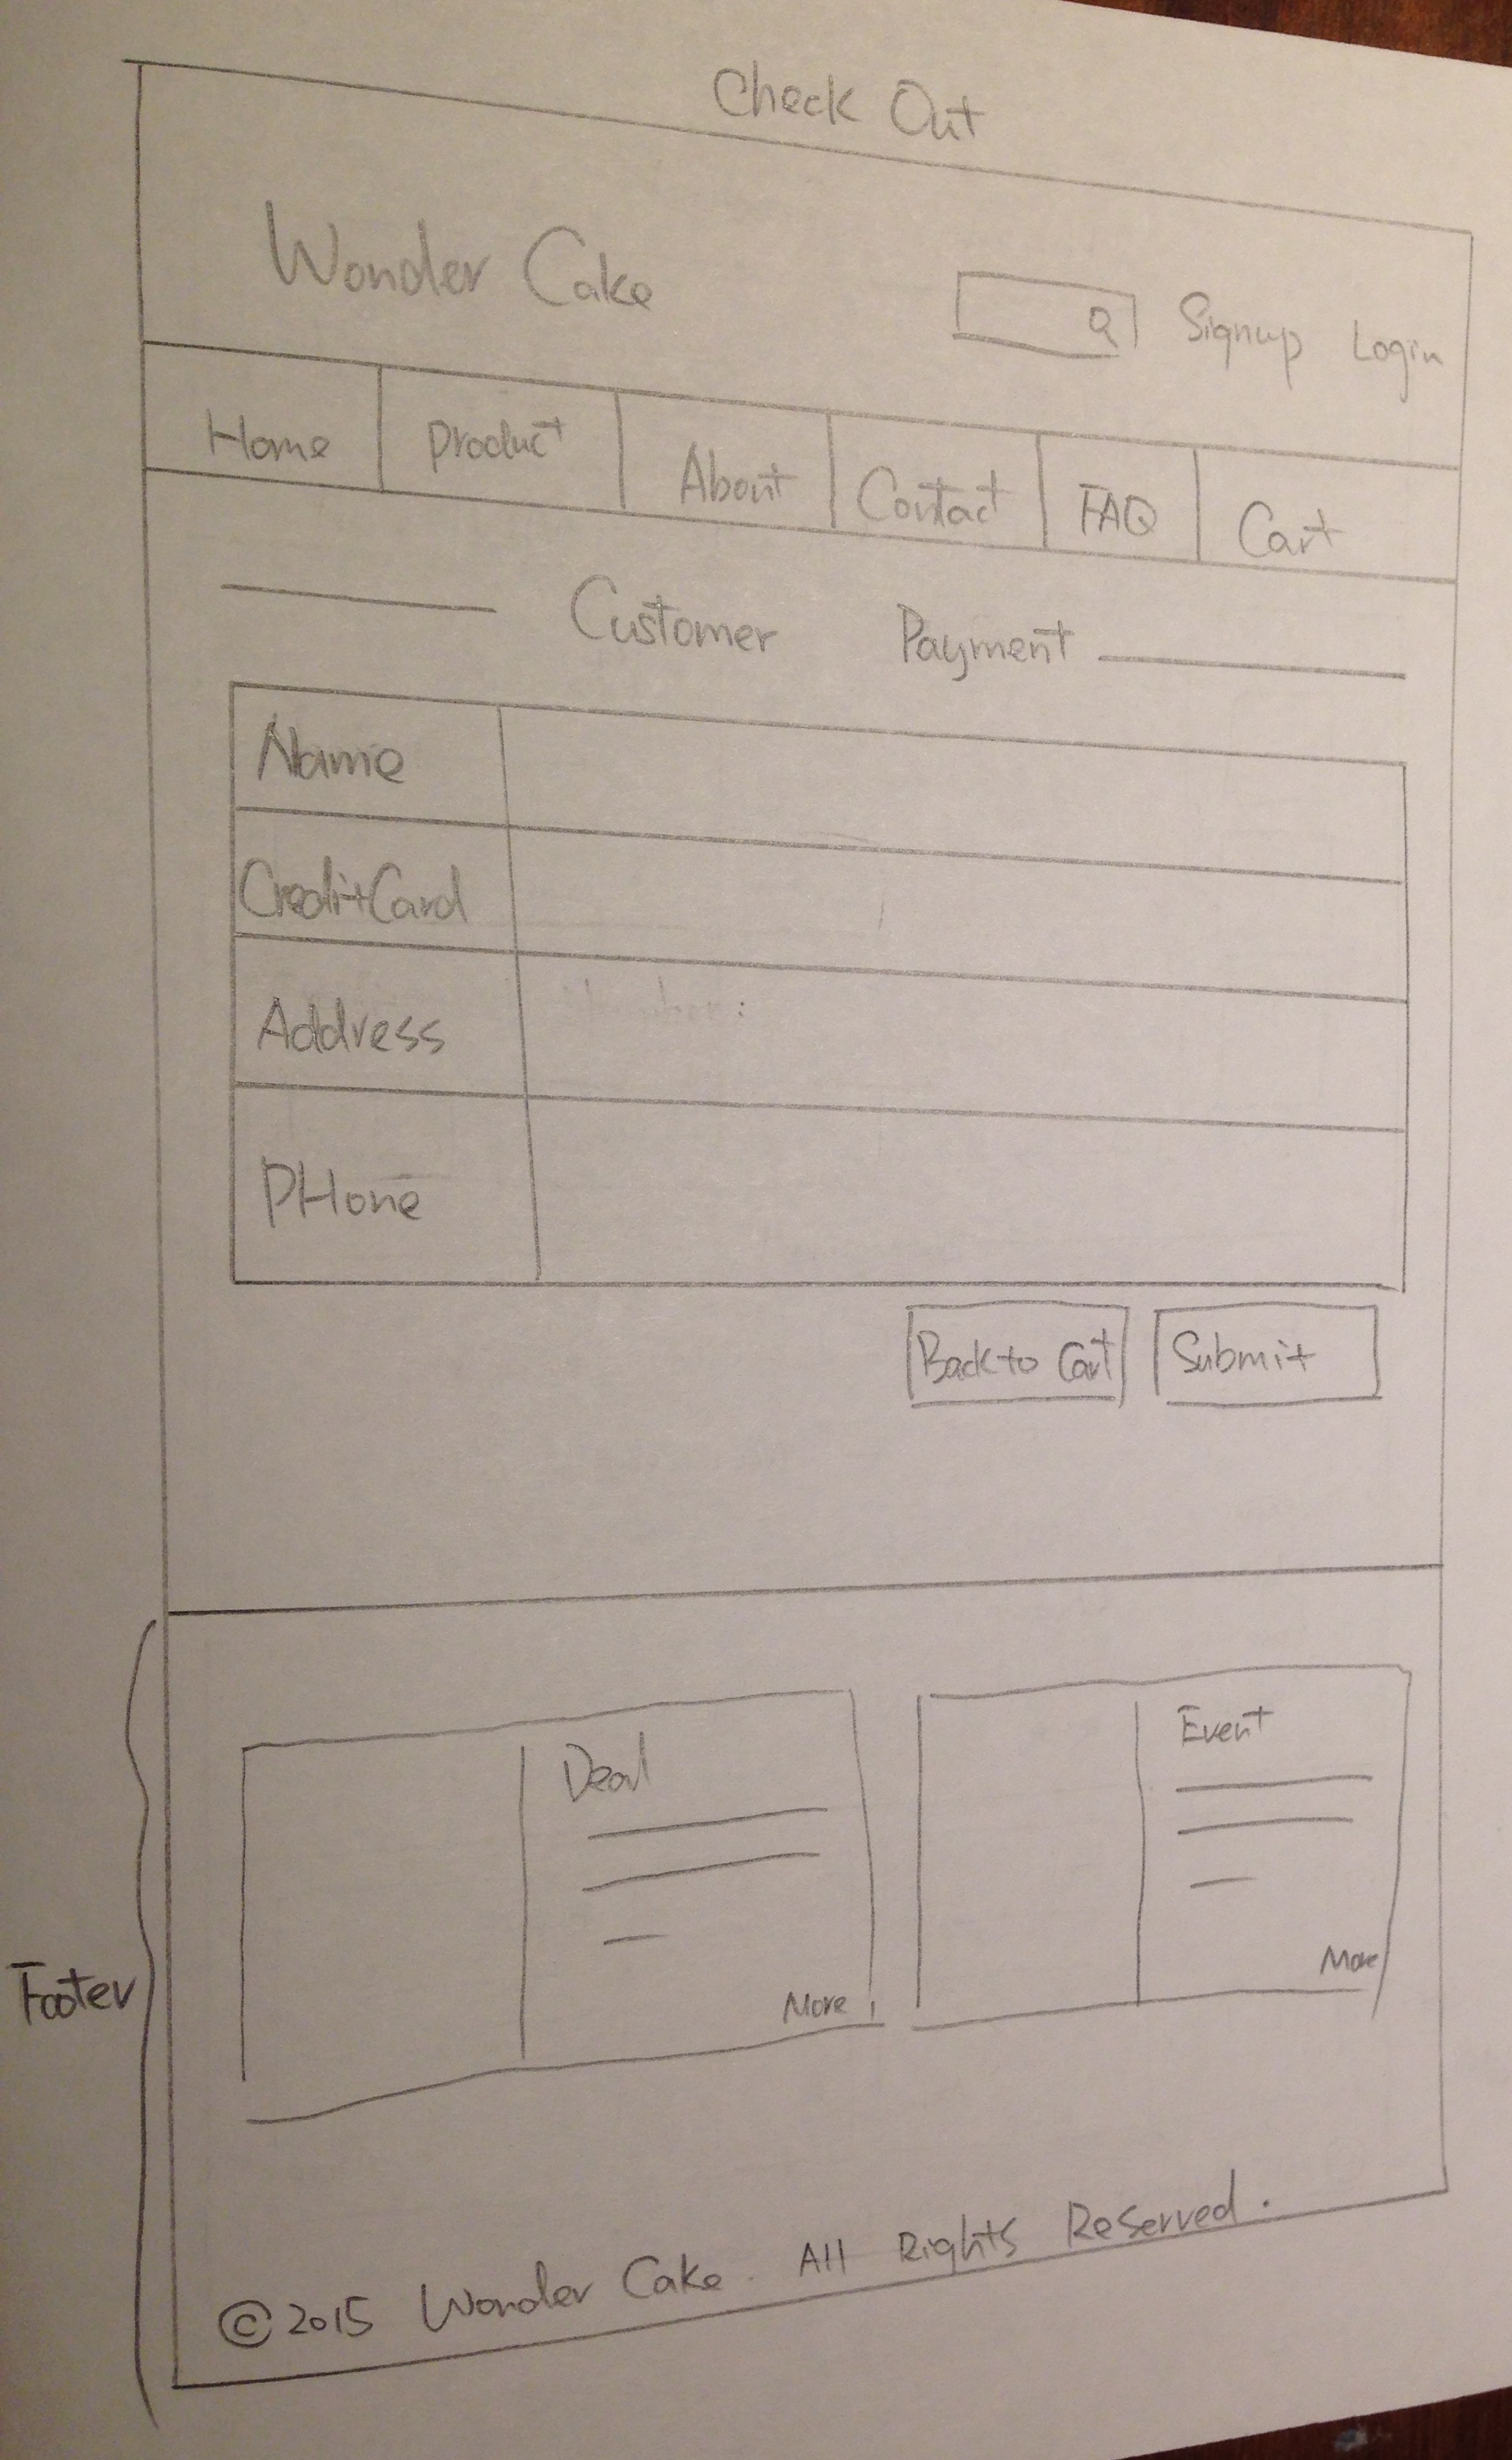 Check Out
Wonder Cake
Signup Login
Home Product About Contact FAQ Cart
Customer Payment
Name
CreditCard
Address
PHone
Back to Cart Submit
Footer
Deal
More
Event
More
©2015 Wonder Cake. All Rights Reserved.